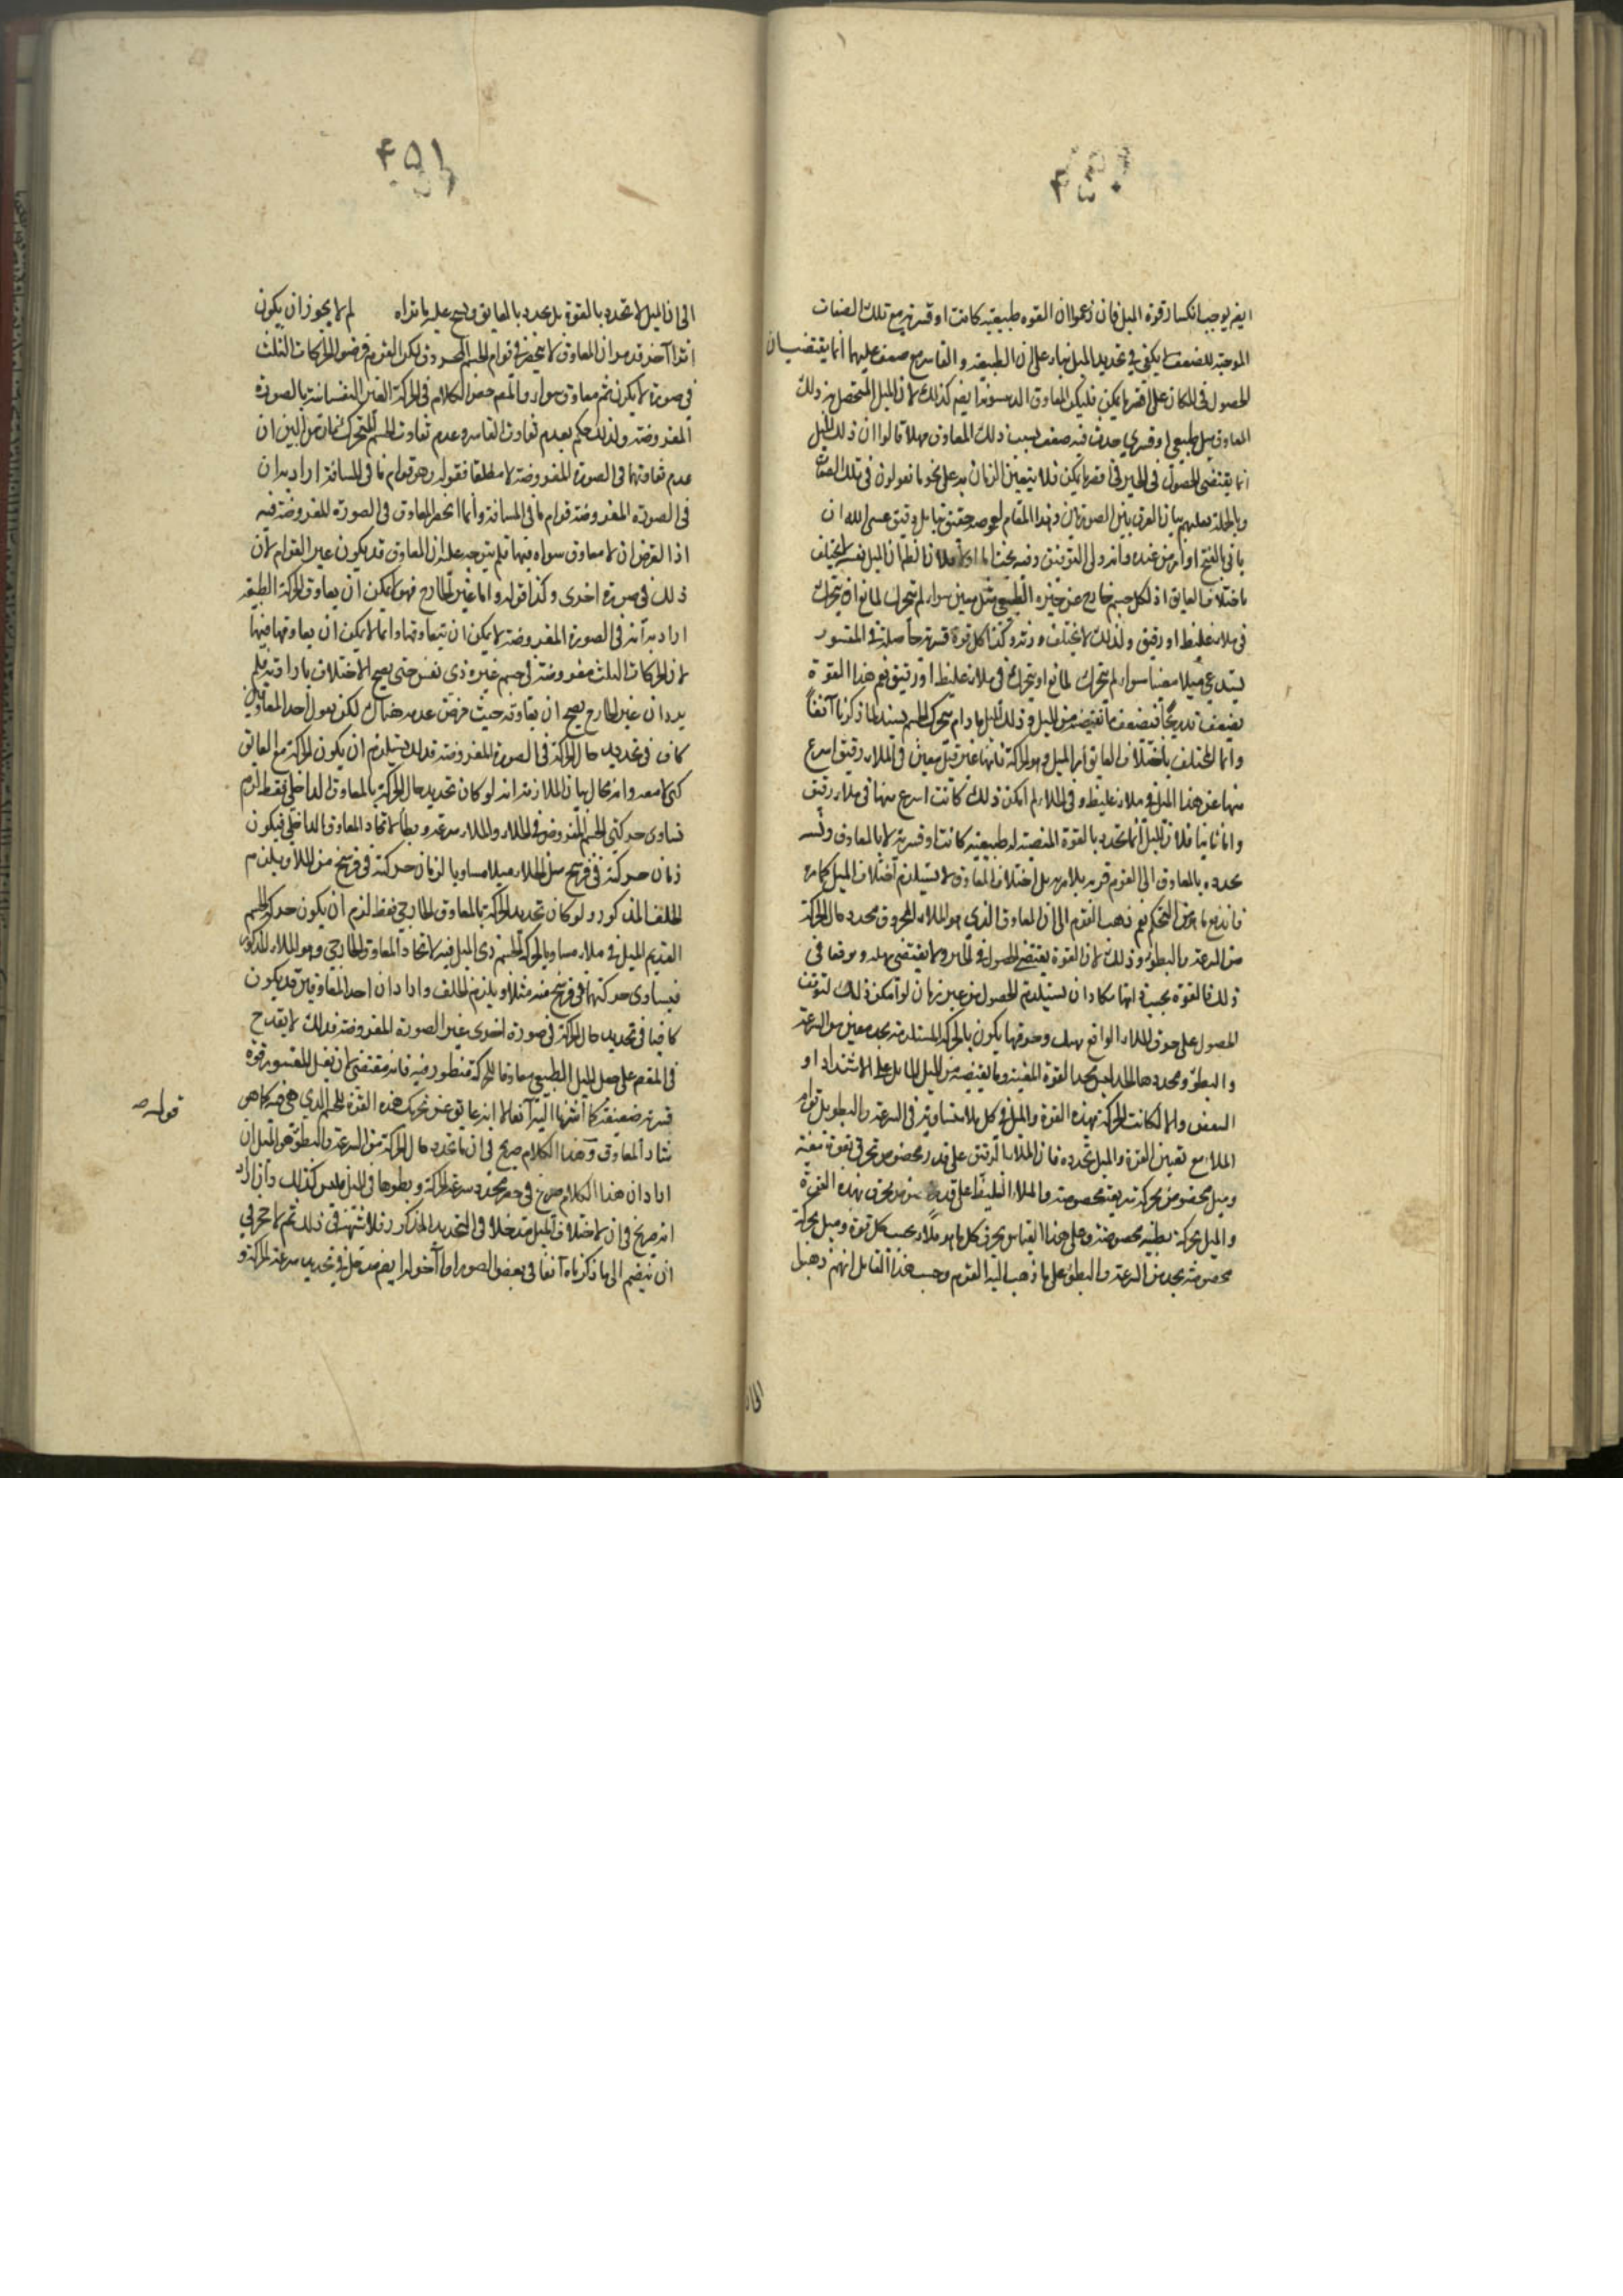 ايض يوجب انكسار قوة الميل فان زعموا ان القوه طبيعيه كانت او قسريه مع تلك الصفات
الموجبه للضعف يكفى فى تحديد الميل بناء على ان الطبيعه و القاسر مع ضعف عليهما انما يقتضيان
الحصول فى المكان على اقصر ما يمكن فليكن المعاوق ايض كذلك لان الميل المتحصل من ذلك
المعاوق ميل طبيعى او قسرى حدث فيه ضعف بسبب ذلك المعاوق فهلا قالوا ان ذلك الميل
انما يقتضى الحصول فى الحيز فى اقصر ما يمكن فلا يتعين الزمان به على نحو ما تقولون فى تلك الصفات
وبالجمله فعليهم بيان الفرق بين الصورتين وهذا المقام لعوصه حقيق بتامل دقيق عسى الله ان
ياتى بالفتح او امر من عنده وانه ولى التوفيق وفيه بحث اما اولا فلان الميل نفسه لا يختلف
باختلاف العايق اذ لكل جسم خارج عن حيزه الطبيعى ميل معين سواء لم يتحرك لمانع او يتحرك
فى ملاء غليظ او رقيق ولذلك لا يختلف وزنه وكذا كل قوة قسريه حاصله فى المقسور
يستدعى ميلا معينا سواء لم يتحرك لمانع او يتحرك فى ملاء غليظ او رقيق نعم هذا القوة
يضعف تدريجا فيضعف ما تقتضيه من الميل و ذلك الميل ما دام يتحرك الجسم يشتد لما ذكرنا آنفا
وانما المختلف باختلاف العايق اثر الميل وهو الحركة فانها عن ميل معين فى الملاء رقيق اسرع
منها عن هذا الميل فى ملاء غليظ و فى الخلاء لو امكن ذلك كانت اسرع منها فى ملاء رقيق
واما ثانيا فلان الميل انما يتحدد بالقوة المقتضيه له طبيعيه كانت او قسريه لا بالمعاوق ونسبه
تحدده بالمعاوق الى القوم فريه بلا مريه بل اختلاف المعاوق لا يستلزم اختلاف الميل كما مر
فاندفع ما من التحكم نعم ذهب القوم الى ان المعاوق الذى هو الملاء المخروق محدد حال الحركة
من السرعة والبطؤ وذلك لان القوة يقتضى الحصول فى الحيز ولا يقتضى مهله و توقفا فى
ذلك فالقوة بحسب ذاتها يكاد ان يستلزم الحصول من غير زمان لو امكن ذلك لتوقف
الحصول على خرق الملاء الواقع هناك وخرقها يكون بالحركة المستلزمه بحد معين من السرعة
والبطؤ و محدد هذا الحد لعين تحدد القوة المعينه وما يقتضيه من الميل القابل على الاشتداد او
الضعف والا لكانت الحركة بهذه القوة والميل فى كل ملاء متساوية فى السرعة والبطو بل قوام
الملاء مع تعيين القوة والميل تحدده فان الملاء الرقيق على قدر مخصوص منخرق بقوة معينه
وميل مخصوص بحركة سريعة مخصوصه والملاء الغليظ على قدر منخرق بهذه القوة
والميل بحركة بطيئه مخصوصه وعلى هذا القياس يخرق كل ما هو ملاء بحسب كل قوة وميل بحركة
مخصوصه بحد من السرعة والبطؤ على ما ذهب اليه القوم وحسب هذا القايل انهم ذهبوا
۴۵۱
الى ان الميل لا تتحدد بالقوة بل تحدد بالعايق ورجح عليه ما تراه لم لا يجوز ان يكون
امرا آخر قد مر ان المعاوق لا ينحصر فى قوام الجسم المخروق لكن القوم فرضوا الحركات الثلث
فى صورة لا يكون ثمه معاوق سواه والمص خصص الكلام فى الحركة الغير النفسانيه بالصورة
المفروضه ولذلك حكم بعدم تفاوت القاسر وعدم تفاوت الجسم المتحرك فان من البين ان
عدم تفاوتهما فى الصورة المفروضة لا مطلقا فقوله وهو قوام ما فى المسافة اراد به ان
فى الصورة المفروضة قوام ما فى المسافة وانما انحصر المعاوق فى الصورة المفروضة فيه
اذا لفرض ان لا معاوق سواه فيها فلم يتوجه عليه ان المعاوق قد يكون غير القوام لان
ذلك فى صورة اخرى وكذا قوله واما غير الخارج فهو لا يمكن ان يعاوق الحركة الطبيعيه
اراد به انه فى الصورة المفروضة لا يمكن ان يتعاوقها وانما لا يمكن ان يعاوقها فيها
لان الحركات الثلث مفروضة فى جسم غير ذى نفس حتى يصح الاختلاف بارادته فلم
يرد ان غير الخارج يصح ان يعاوقه حيث فرض عدمه هناك لكن نقول احد المعاوقين
كاف فى تحديد حال الحركة فى الصورة المفروضة قد لك يستلزم ان يكون الحركة مع العايق
كهى لا معه وانه محال بيان الملازمه انه لو كان تحديد حال الحركة بالمعاوق الداخلى فقط لزم
تساوى حركتى الجسم المفروض فى الخلاء والملاء سرعة وبطأ لاتحاد المعاوق الداخلى فيكون
زمان حركته فى فرسخ من الخلاء مثلا مساويا لزمان حركته فى فرسخ من الملاء ويلزم
الخلف المذكور ولو كان تحديد الحركة بالمعاوق الخارجى فقط لزم ان يكون حركة الجسم
العديم الميل فى ملاء مساويا لحركة الجسم ذى الميل فيه لاتحاد المعاوق الخارجى وهو الملاء المذكور
فيساوى حركتهما فى فرسخ منه مثلا ويلزم الخلف وان اراد ان احد المعاوقين قد يكون
كافيا فى تحديد حال الحركة فى صورة اخرى غير الصورة المفروضة فذلك لا يقدح
فى المقصم على جعل الميل الطبيعى معاوقا للحركة منظور فيه فانه مقتضى لان يقبل المقسور قوة
قسريه ضعيفة كما اشرنا اليه آنفا لا انه عايق عن تحريك هذه القوة للجسم الذى هى فيه كما هو
شان المعاوق وهذا الكلام صريح فى ان ما تحدد حال الحركة من السرعة والبطؤ هو الميل ان
اراد ان هذا الكلام صريح فى حصر تحدد سرعة الحركة وبطوها فى الميل فليس كذلك وان اراد
انه صريح فى ان لاختلاف الميل مدخلا فى التحديد المذكور فلا شبهة فى ذلك ثم لا حجر فى
ان ينضم الى ما ذكرناه آنفا فى بعض الصور امرا آخر له ايض مدخل فى تحديد سرعة الحركة و
قوله